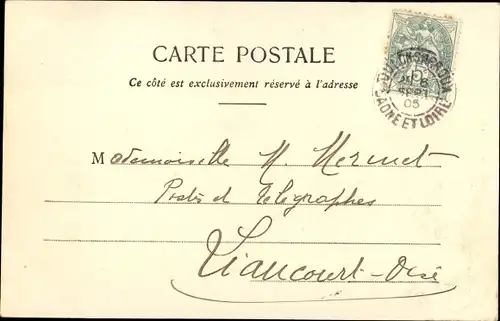 CARTE POSTALE
Ce côté est exclusivement réservé à l'adresse
SEPT
05
SAONE ET LOIRE
Mademoiselle M. Mermet
Postes et Télégraphes
Liancourt - Oise